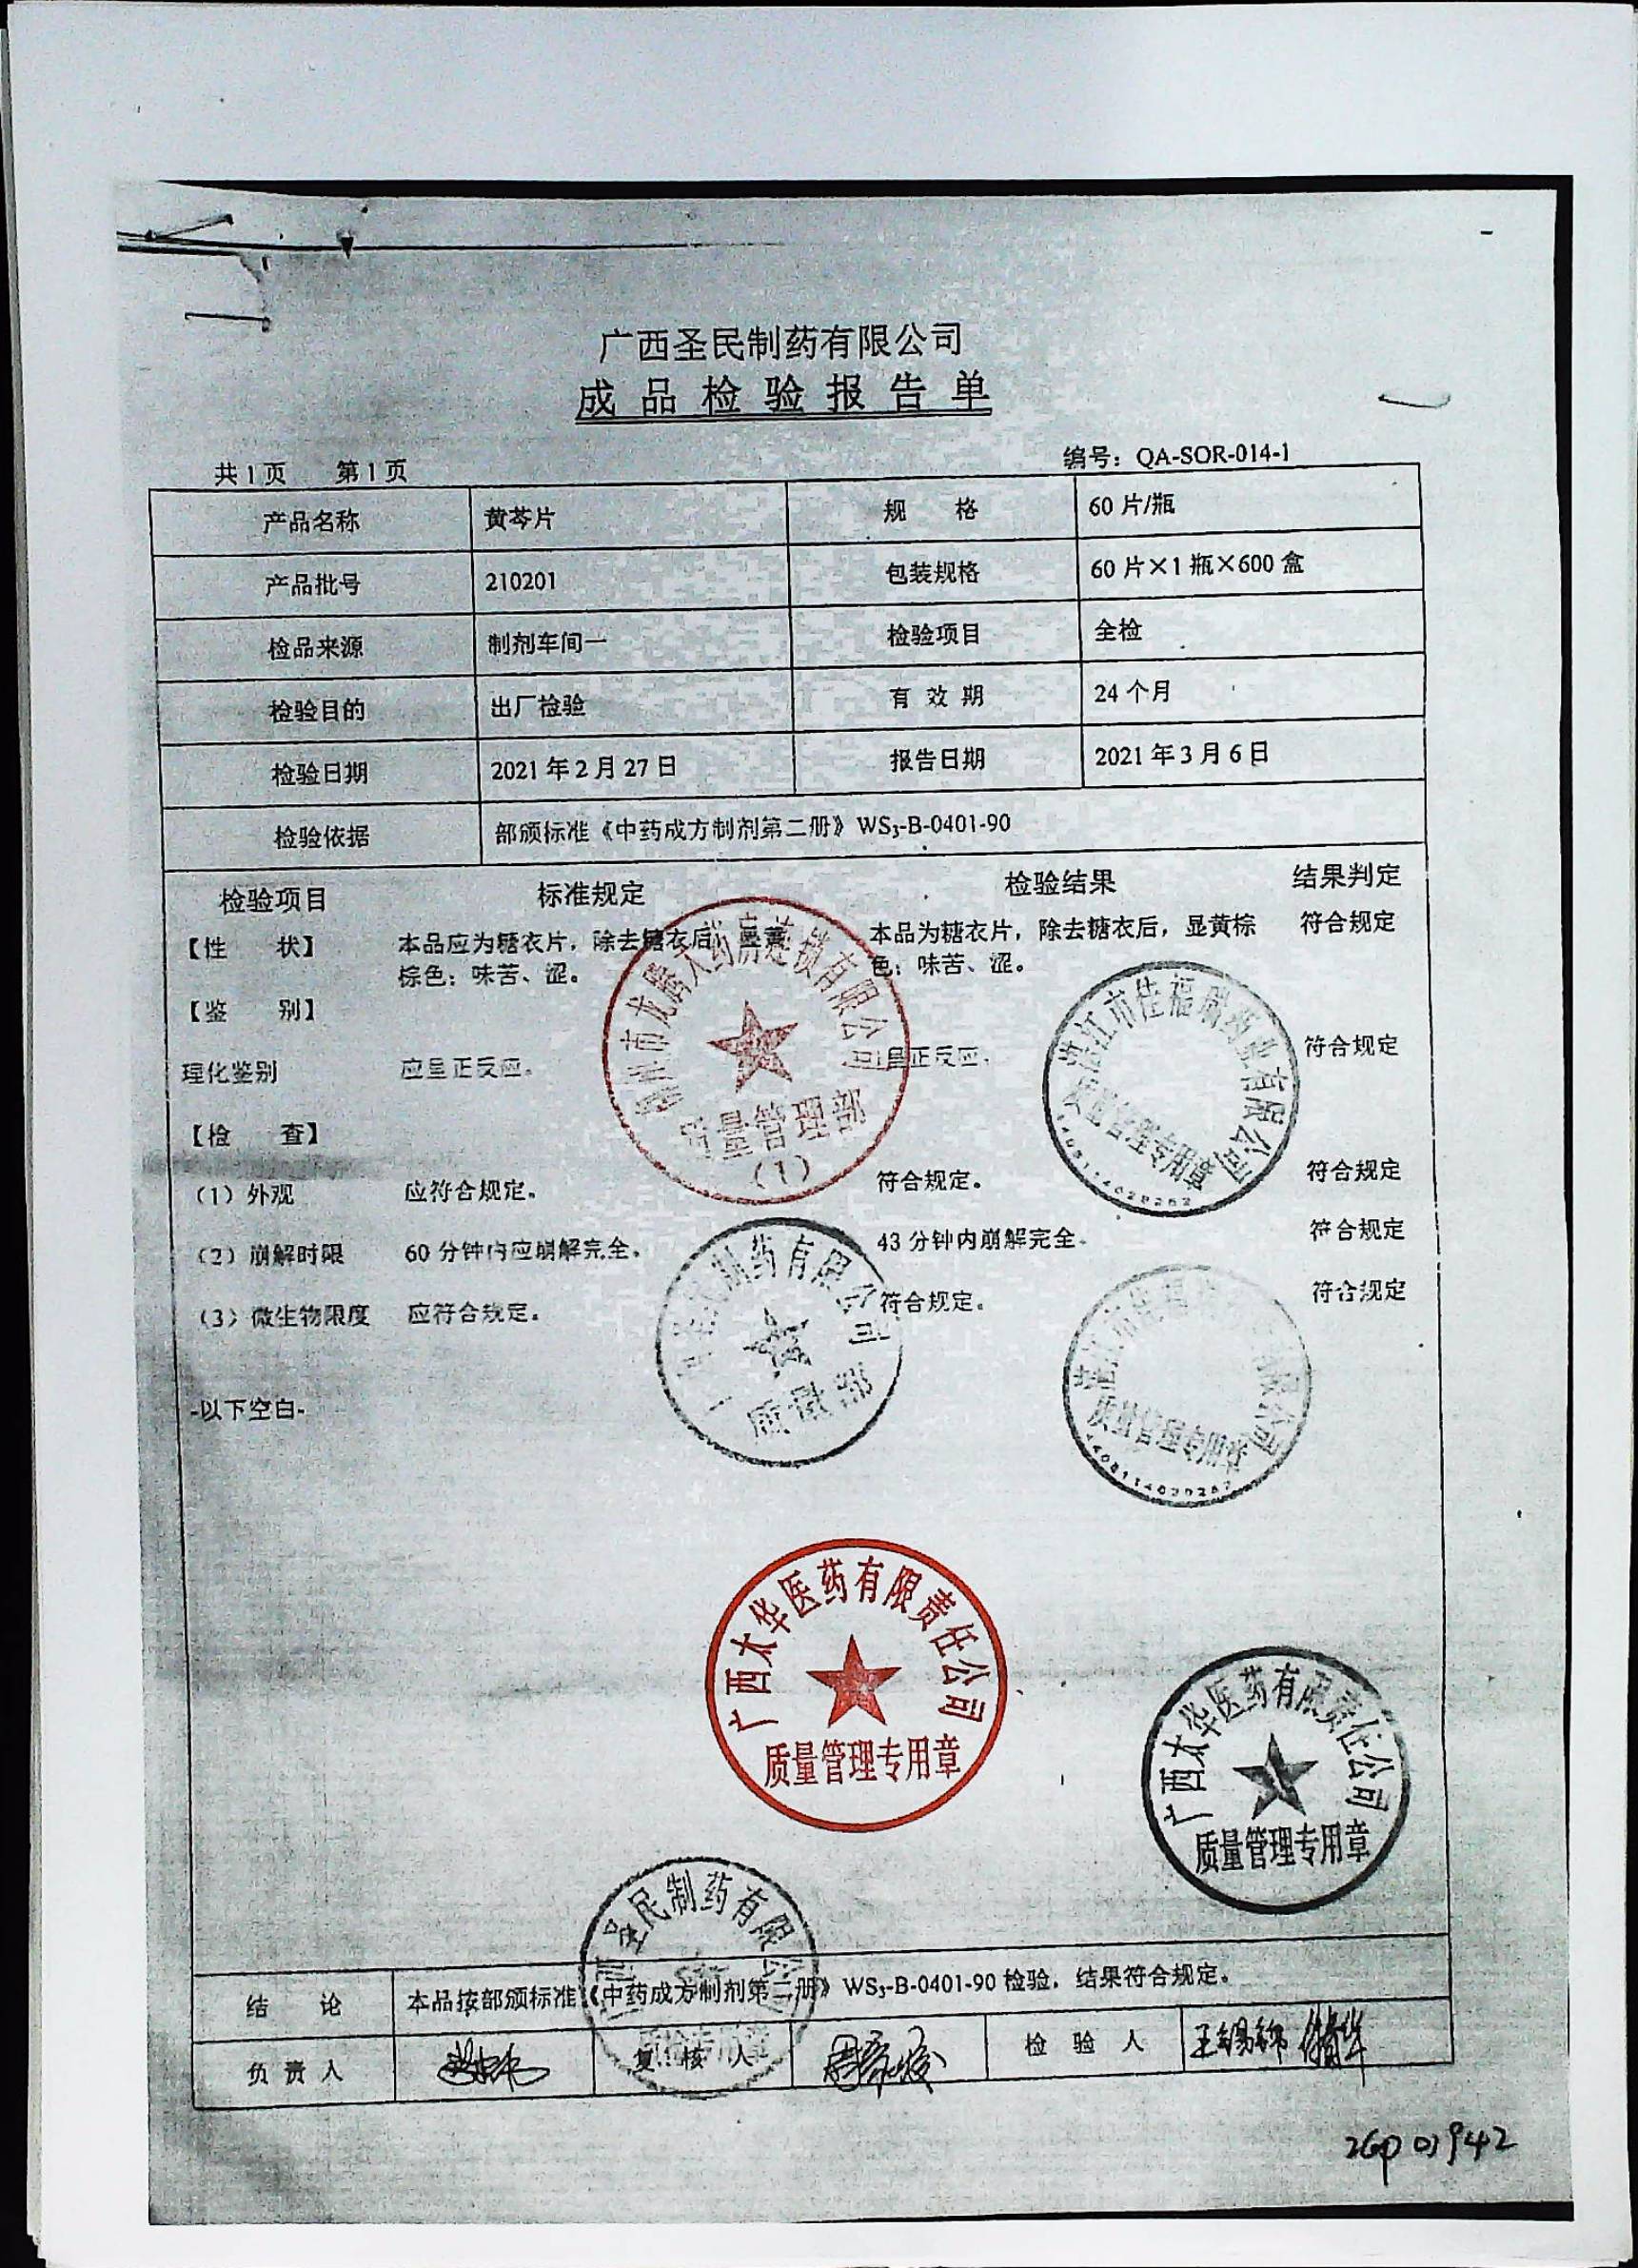 广西圣民制药有限公司
成品检验报告单
共1页 第1页 编号：QA-SOR-014-1
产品名称 黄芩片 规 格 60片/瓶
产品批号 210201 包装规格 60片×1瓶×600盒
检品来源 制剂车间一 检验项目 全检
检验目的 出厂检验 有效期 24个月
检验日期 2021年2月27日 报告日期 2021年3月6日
检验依据 部颁标准《中药成方制剂第二册》WS₃-B-0401-90
检验项目 标准规定 检验结果 结果判定
【性 状】 本品应为糖衣片，除去糖衣后，显黄 本品为糖衣片，除去糖衣后，显黄棕 符合规定
棕色；味苦、涩。 色；味苦、涩。
【鉴 别】
理化鉴别 应呈正反应。 呈正反应。 符合规定
【检 查】
（1）外观 应符合规定。 符合规定。 符合规定
（2）崩解时限 60分钟内应崩解完全。 43分钟内崩解完全。 符合规定
（3）微生物限度 应符合规定。 符合规定。 符合规定
-以下空白-
市龙腾大药房连锁有限公司
质量管理部
（1）
湛江市佳福瑞药业有限公司
质量管理专用章
民制药有限公司
湛江市佳福
质量管理专用章
广西太华医药有限责任公司
质量管理专用章
广西太华医药有限责任公司
质量管理专用章
圣民制药有限公
质检专用章
结 论 本品按部颁标准《中药成方制剂第二册》WS₃-B-0401-90检验，结果符合规定。
负责人 复核人 检验人 王锡锦